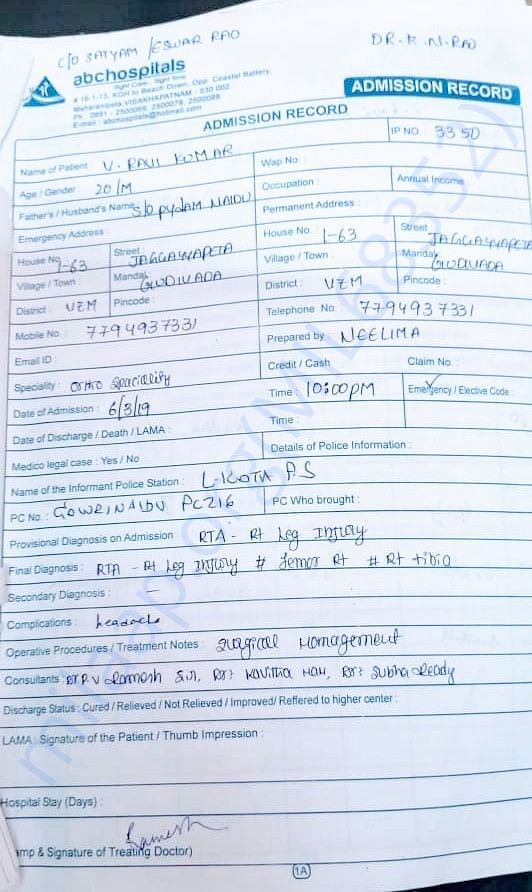 C/O SATYAM /ESWAR RAO
DR. K. N. RAO
abchospitals
Right Care... Right Time
# 15-1-13, KGH to Beach Down, Opp. Coastal Battery,
Maharanipeta, VISAKHAPATNAM - 530 002
E-mail : abchospitals@hotmail.com
ADMISSION RECORD
ADMISSION RECORD
IP NO : 3350
Name of Patient : V. RAVI KUMAR
Wap No :
Age / Gender : 20/M
Occupation :
Annual Income
Father's / Husband's Name : S/o PYDAM NAIDU
Permanent Address :
Emergency Address :
House No. 1-63 Street : JAGGAYYAPETA
House No. 1-63 Street JAGGAYYAPETA
Village / Town : Mandal GUDIVADA
Village / Town : Mandal GUDIVADA
District : VZM Pincode :
District : VZM Pincode :
Mobile No. 7794937331
Telephone No. 7794937331
Email ID :
Prepared by : NEELIMA
Speciality : ortho Speciality
Credit / Cash
Claim No. :
Date of Admission : 6/3/19
Time : 10:00PM
Emergency / Elective Code :
Date of Discharge / Death / LAMA :
Time :
Medico legal case : Yes / No
Details of Police Information :
Name of the Informant Police Station : L-KOTA P.S
PC No. : GOWRINAIDU PC216
PC Who brought :
Provisional Diagnosis on Admission RTA - Rt Leg Injury
Final Diagnosis : RTA - Rt Leg Injury # femor Rt # Rt tibia
Secondary Diagnosis : —
Complications : headache
Operative Procedures / Treatment Notes : Surgical Management
Consultants : Ramesh Sir, Kavitha Subha Ready
Discharge Status : Cured / Relieved / Not Relieved / Improved/ Reffered to higher center :
LAMA : Signature of the Patient / Thumb Impression :
Hospital Stay (Days) :
Ramesh
amp & Signature of Treating Doctor)
1A